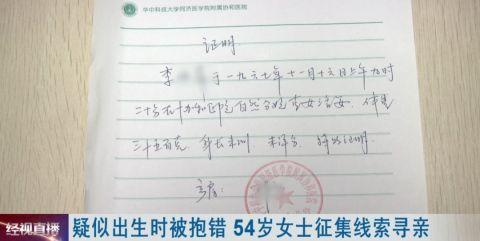 华中科技大学同济医学院附属协和医院
证明
李 于一九六七年十一月十六日上午九时
二十分在协和医院自然分娩 女活婴 体重
三千五百克 身长未测 未评分 特此证明
经视直播
疑似出生时被抱错 54岁女士征集线索寻亲